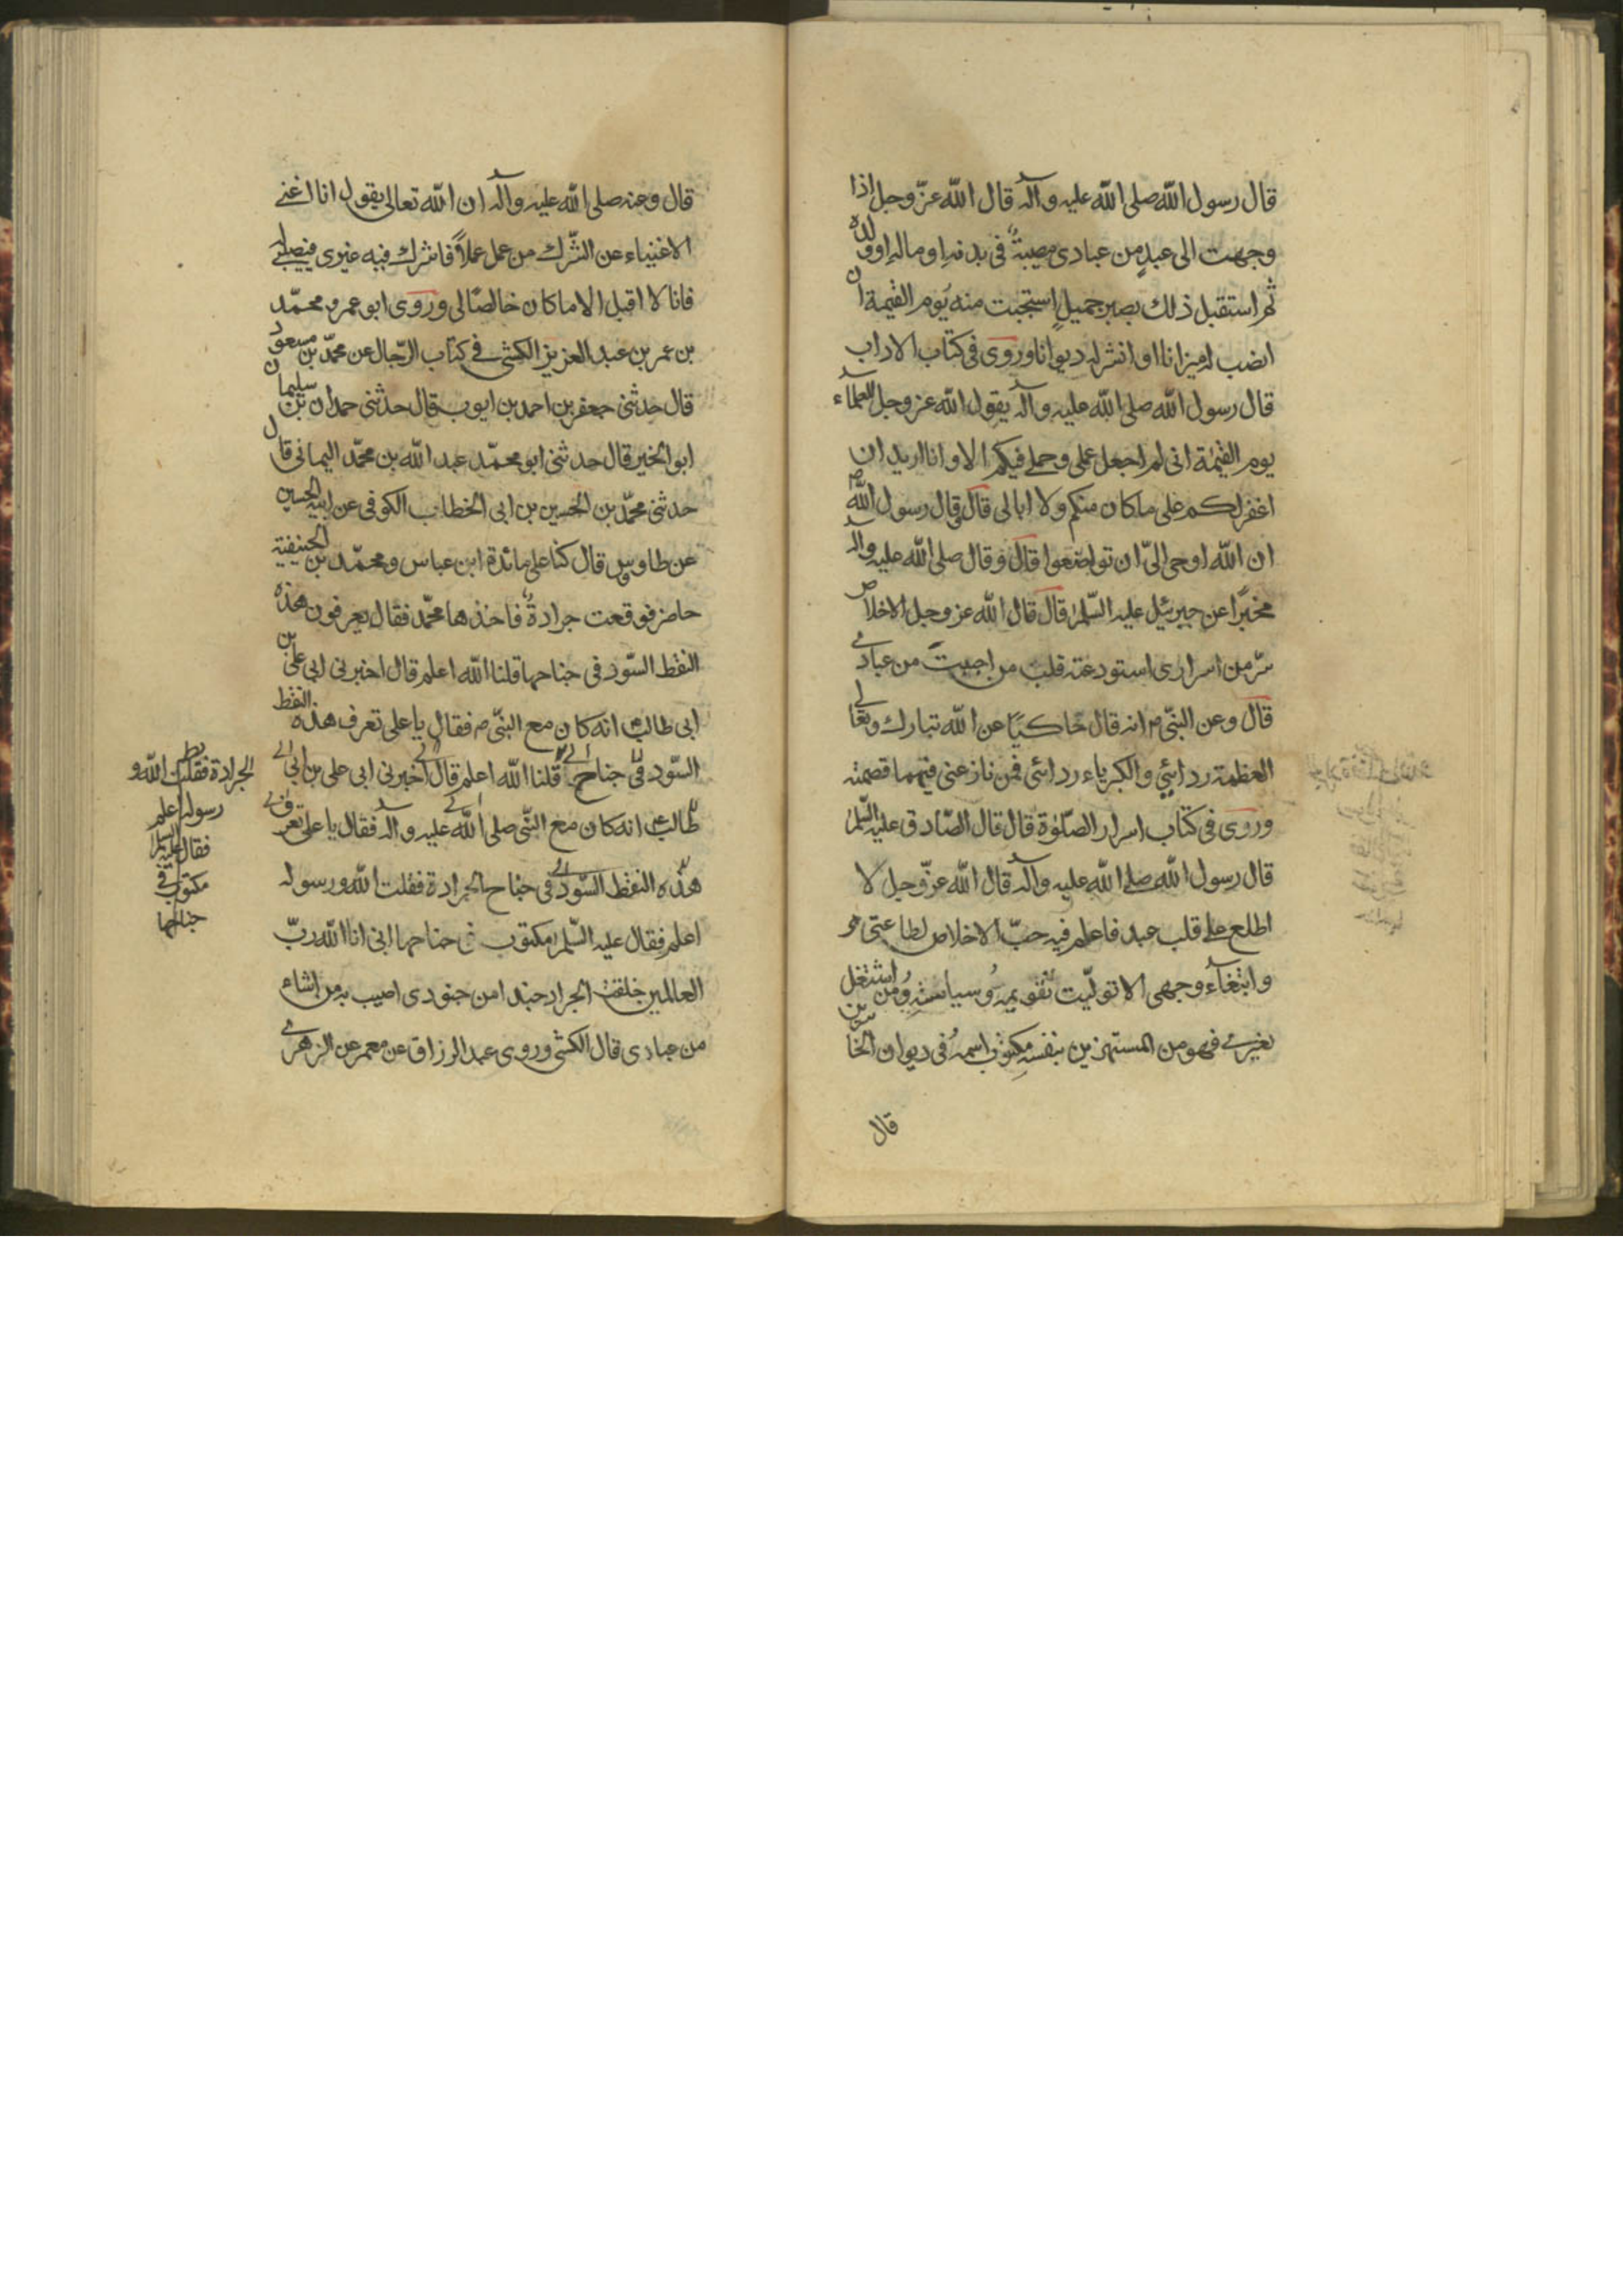 قال رسول الله صلى الله عليه وآله قال الله عزّ وجل اذا
وجهت الى عبدٍ من عبادى مصيبةً فى بدنه او ماله او ولده
ثم استقبل ذلك بصبر جميلٍ استجبت منه يوم القيمة ان
انصب له ميزانا او انشر له ديوانا وروى فى كتاب الاداب
قال رسول الله صلى الله عليه وآله يقول الله عز وجل للعلماء
يوم القيمة انى لم اجعل على وحلمى فيكم الا وانا اريد ان
اغفر لكم على ما كان منكم ولا ابالى قال قال رسول الله ص
ان الله اوحى الىّ ان تواضعوا قال وقال صلى الله عليه وآله
مخبرًا عن جبرئيل عليه السّلم قال قال الله عز وجل الاخلاص
سرّ من اسرارى استودعته قلب من احببت من عبادى
قال وعن النبىّ م انه قال حاكيًا عن الله تبارك وتعالى
العظمة ردائي والكبرياء ردائى فمن نازعنى فيهما قصمته
وروى فى كتاب اسرار الصّلوة قال قال الصّادق عليه السّلم
قال رسول الله صلى الله عليه وآله قال الله عزّ وجل لا
اطلع على قلب عبد فاعلم فيه حبّ الاخلاص لطاعتى
وابتغاء وجهى الا تولّيت تقويمه وسياسته ومن اشتغل
بغيرى فهو من المستهزئين بنفسه مكتوب اسمه فى ديوان الخاسرين
قال
قال وعنه صلى الله عليه وآله ان الله تعالى يقول انا اغنى
الاغنياء عن الشّرك من عمل عملاً فاشرك فيه غيرى فنصيبى له
فانا لا اقبل الا ما كان خالصًا لى وروى ابو عمرو محمّد
بن عمر بن عبد العزيز الكشى فى كتاب الرّجال عن محمّد بن مسعود
قال حدثنى جعفر بن احمد بن ايوب قال حدثنى حمدان بن سليمان
ابو الخير قال حدثنى ابو محمّد عبد الله بن محمّد اليمانى قال
حدثنى محمّد بن الحسين بن ابى الخطاب الكوفى عن ابيه الحسين
عن طاوس قال كنا على مائدة ابن عباس ومحمّد بن الحنيفية
حاضر فوقعت جرادةٌ فاخذها محمّد فقال يعرفون هذه
النقط السّود فى جناحها قلنا الله اعلم قال اخبرنى ابى على بن
ابى طالب انه كان مع النبىّ م فقال يا على تعرف هذه النقط
السّود فى جناح قلنا الله اعلم قال اخبرنى ابى على بن ابى
طالب انه كان مع النبّى صلى الله عليه وآله فقال يا على تعرف
هذه النقط السّود فى جناح الجرادة فقلت الله ورسوله
اعلم فقال عليه السّلم مكتوب فى جناحها انى انا الله ربّ
العالمين خلقت الجراد جندا من جنودى اصيب به من اشاء
من عبادى قال الكشى وروى عبد الرزاق عن معمر عن الزهرى
الجرادة فقلت الله و
رسوله اعلم
فقال عليه السلم
مكتوب فى
جناحها